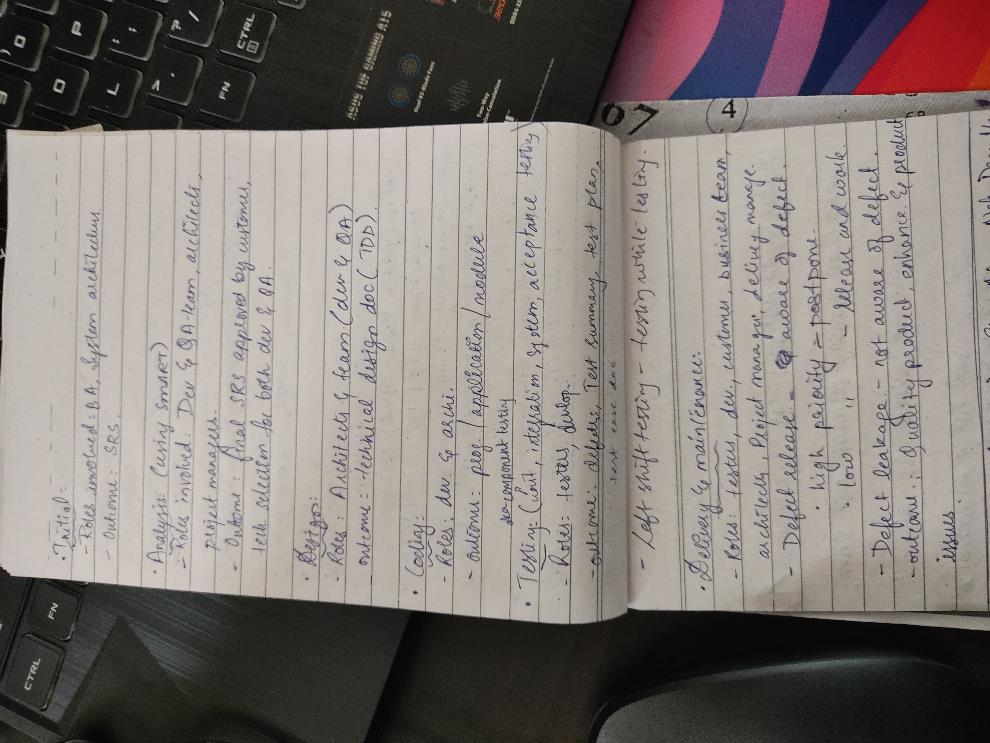 • Initial:
- Roles involved: BA, System architecture,
- Outcome: SRS
• Analysis: (using SMART)
- Roles involved: Dev & QA team, architects,
project managers
- Outcome: final SRS approved by customer,
tech selection for both dev & QA
• Design:
- Roles: Architects & team (dev & QA)
outcome: technical design doc (TDD)
• Coding:
- Roles: dev & archi.
- outcome: prog. / application / module
component testing
• Testing: (unit, integration, system, acceptance testing)
- Roles: tester, develop.
- outcome: defects, Test summary, test plan,
test case doc
- Left shift testing - testing while testing.
• Delivery & maintenance:
- Roles: testers, dev, customer, business team,
architects, Project manager, delivery manage.
- Defect release - aware of defect.
• high priority = postpone
• low " - release and work
- Defect leakage - not aware of defect.
- outcome: Quality product, enhance & product
issues.
07
4
ASUS TUF GAMING A15
P
O
L
:
;
>
.
?
/
CTRL
FN
FN
CTRL